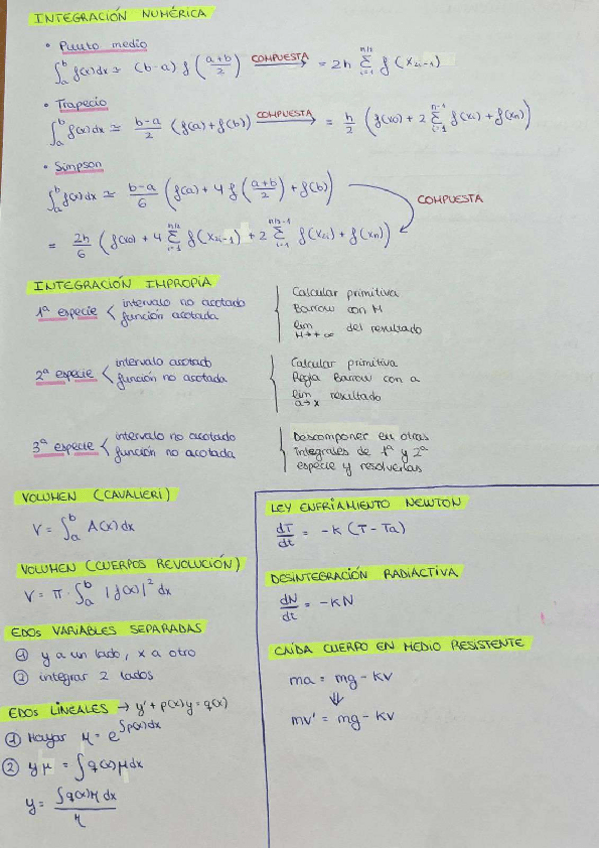 INTEGRACIÓN NUMÉRICA
• Punto medio
∫_a^b f(x)dx ≃ (b-a) f((a+b)/2) COMPUESTA → = 2h Σ_{i=1}^{n/2} f(x_{2i-1})
• Trapecio
∫_a^b f(x)dx ≃ (b-a)/2 (f(a)+f(b)) COMPUESTA → = h/2 (f(x0) + 2 Σ_{i=1}^{n-1} f(xi) + f(xn))
• Simpson
∫_a^b f(x)dx ≃ (b-a)/6 (f(a) + 4 f((a+b)/2) + f(b))
COMPUESTA
= 2h/6 (f(x0) + 4 Σ_{i=1}^{n/2} f(x_{2i-1}) + 2 Σ_{i=1}^{n/2-1} f(x_{2i}) + f(xn))
INTEGRACIÓN IMPROPIA
1ª especie < intervalo no acotado
función acotada
Calcular primitiva
Barrow con M
lim M→+∞ del resultado
2ª especie < intervalo acotado
función no acotada
Calcular primitiva
Regla Barrow con a
lim a→x resultado
3ª especie < intervalo no acotado
función no acotada
Descomponer en otras
integrales de 1ª y 2ª
especie y resolverlas
VOLUMEN (CAVALIERI)
V = ∫_a^b A(x)dx
VOLUMEN (CUERPOS REVOLUCIÓN)
V = π · ∫_a^b |f(x)|² dx
EDOs VARIABLES SEPARADAS
① y a un lado, x a otro
② integrar 2 lados
EDOs LINEALES → y' + p(x)y = q(x)
① Hallar μ = e^{∫p(x)dx}
② yμ = ∫q(x)μdx
y = ∫q(x)μdx / μ
LEY ENFRIAMIENTO NEWTON
dT/dt = -K (T - Ta)
DESINTEGRACIÓN RADIACTIVA
dN/dt = -KN
CAÍDA CUERPO EN MEDIO RESISTENTE
ma = mg - KV
⇓
mv' = mg - KV